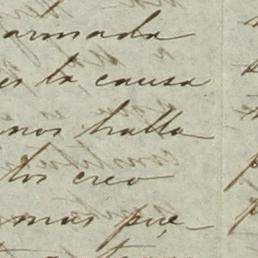 armada
es la causa
nos halla
los creo
mas pue-